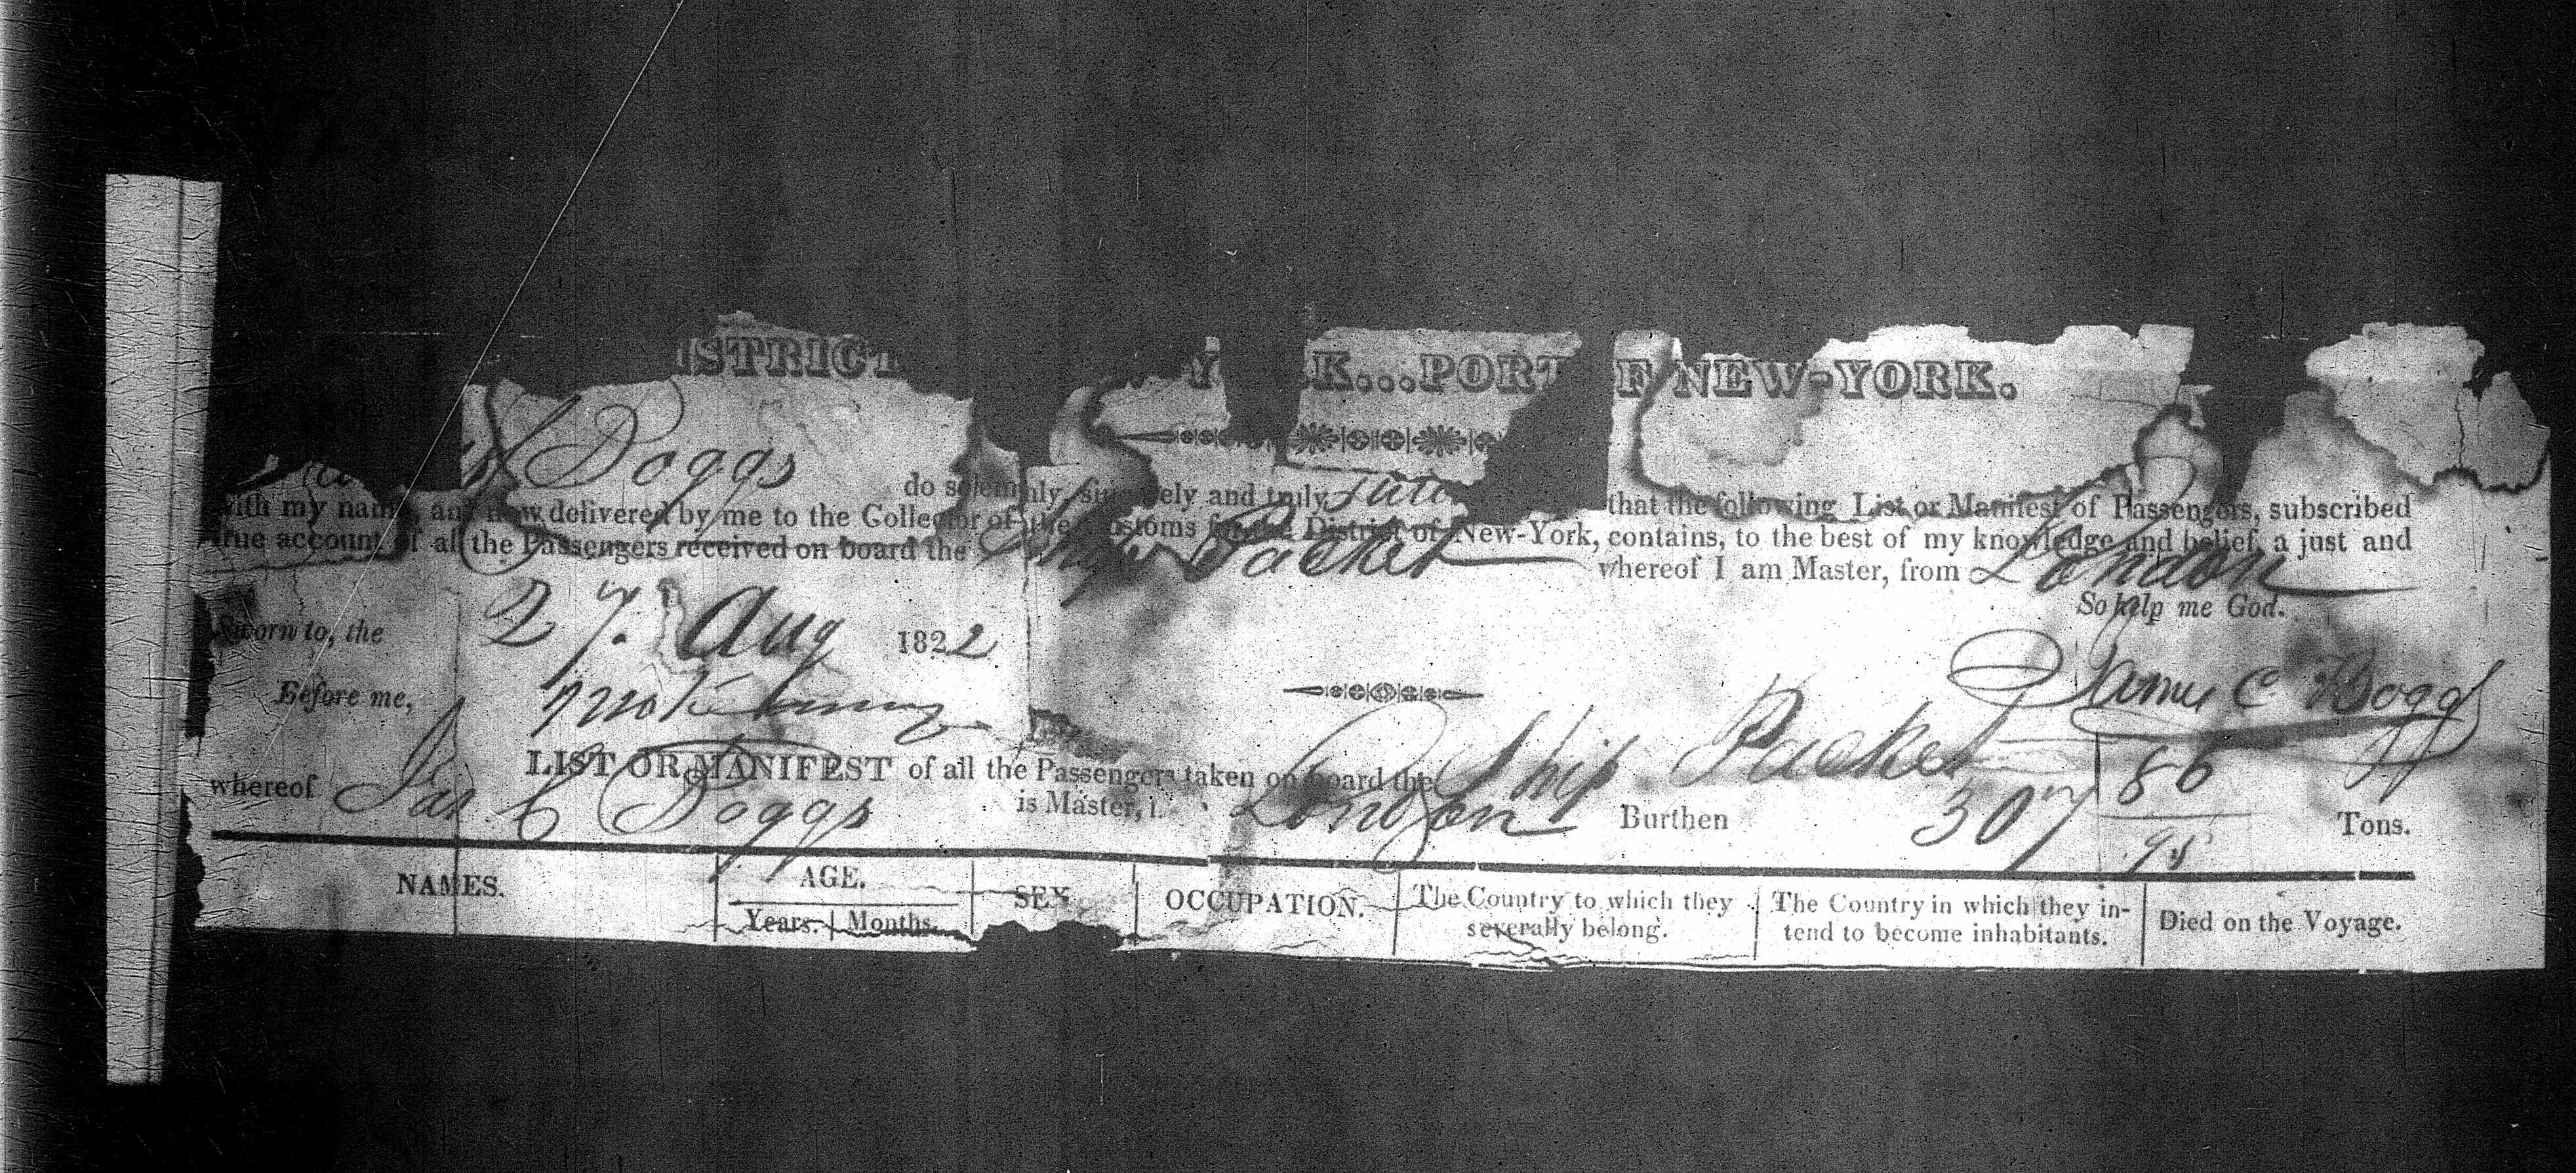 ISTRICT Y K...PORT F NEW-YORK.
Boggs do solemnly, sincerely and truly that the following List or Manifest of Passengers, subscribed
with my name, and now delivered by me to the Collector of the Customs for the District of New-York, contains, to the best of my knowledge and belief, a just and
true account of all the Passengers received on board the Ship Packet whereof I am Master, from London
So help me God.
Sworn to, the 27 Aug 1822
James C Boggs
Before me,
LIST OR MANIFEST of all the Passengers taken on board the Ship Packet
whereof Jas C Boggs is Master, London Burthen 307 86/95 Tons.
NAMES. AGE. SEX OCCUPATION. The Country to which they severally belong. The Country in which they in-
Years. Months. tend to become inhabitants. Died on the Voyage.